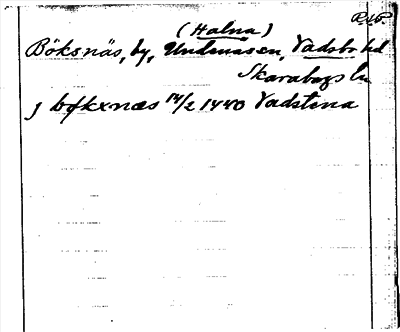 RAP.
(Halna)
Böksnäs, by, Undenäs sn, Vadsbo hd
Skaraborgs ln
j bøkxnæs 14/2 1440 Vadstena